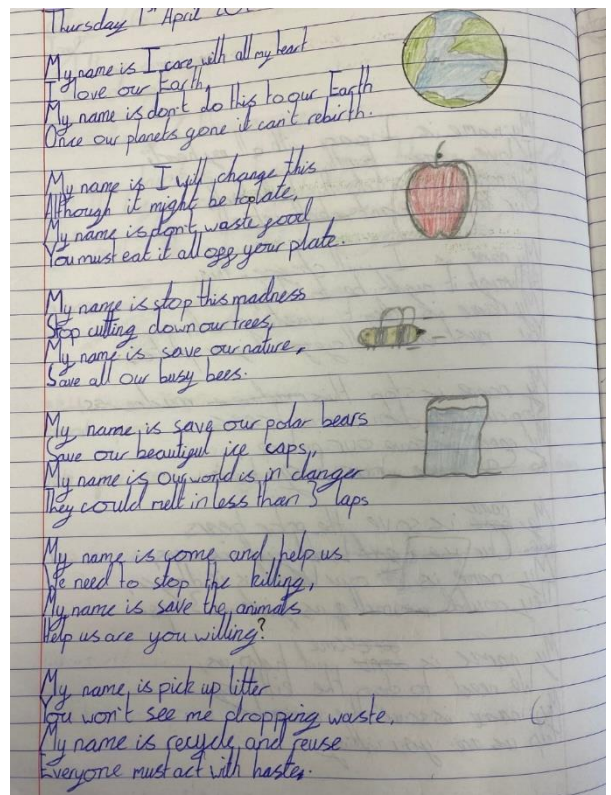 Thursday 1st April
My name is I care, with all my heart
I love our Earth,
My name is don't do this to our Earth
Once our planets gone it can't rebirth.
My name is I will change this
Although it might be to late,
My name is don't waste food
You must eat it all off your plate.
My name is stop this madness
Stop cutting down our trees,
My name is save our nature,
Save all our busy bees.
My name is save our polar bears
Save our beautiful ice caps,
My name is our world is in danger
They could melt in less than 3 laps
My name is come and help us
We need to stop the killing,
My name is save the animals
Help us are you willing?
My name is pick up litter
You won't see me dropping waste,
My name is recycle and reuse
Everyone must act with haste.